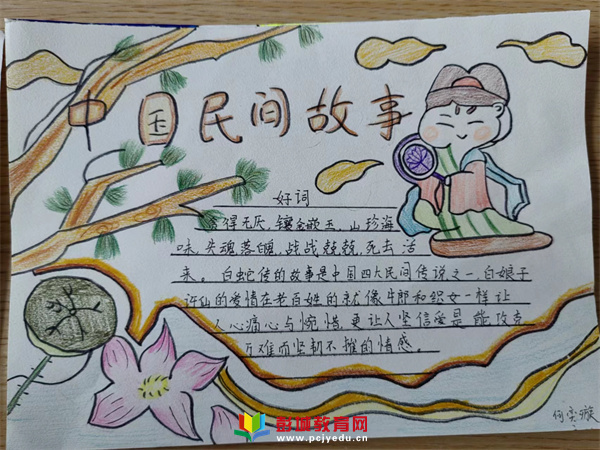 中国民间故事
好词
贪得无厌、镶金嵌玉、山珍海
味、失魂落魄、战战兢兢、死去活
来。白蛇传的故事是中国四大民间传说之一,白娘子
许仙的爱情在老百姓的就像牛郎和织女一样让
人心痛心与惋惜,更让人坚信爱是能攻克
万难而坚韧不摧的情感。
彭城教育网
www.pcjyedu.cn